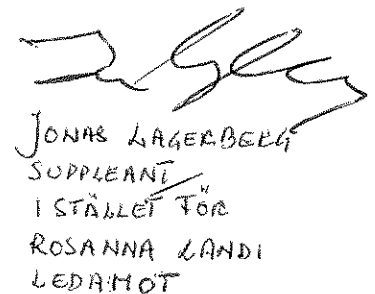 JONAS LAGERBERG
SUPPLEANT
I STÄLLET FÖR
ROSANNA LANDI
LEDAMOT